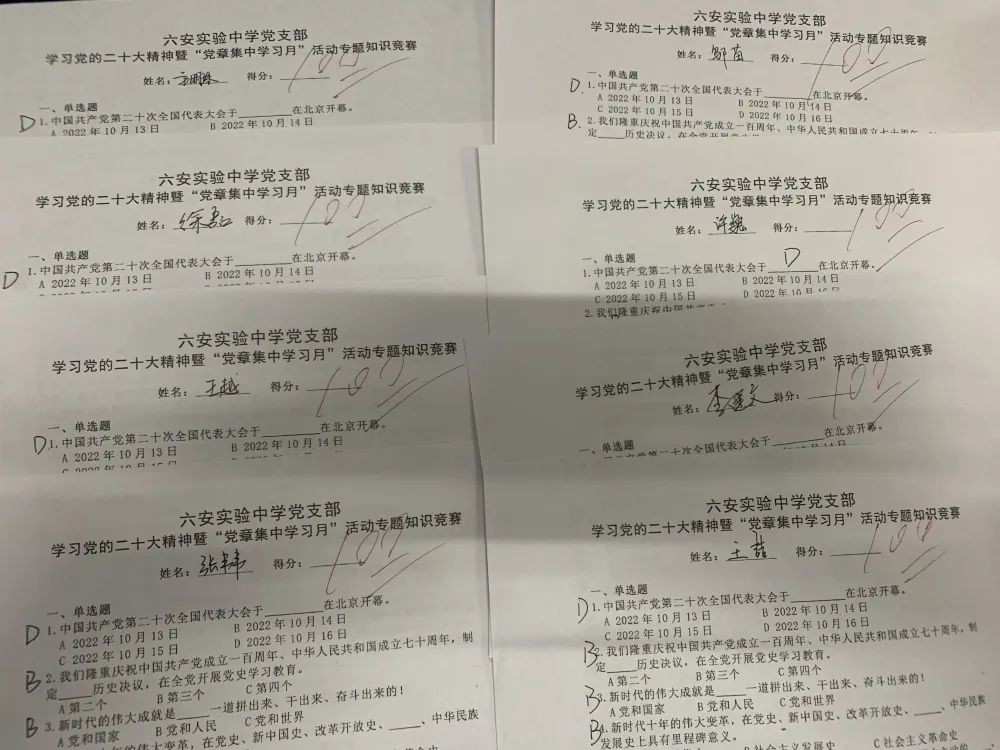 六安实验中学党支部
学习党的二十大精神暨“党章集中学习月”活动专题知识竞赛
姓名： 得分：100
一、单选题
D 1.中国共产党第二十次全国代表大会于______在北京开幕。
A 2022 年 10 月 13 日 B 2022 年 10 月 14 日
六安实验中学党支部
学习党的二十大精神暨“党章集中学习月”活动专题知识竞赛
姓名：邹苗 得分：100
一、单选题
D. 1.中国共产党第二十次全国代表大会于______在北京开幕。
A 2022 年 10 月 13 日 B 2022 年 10 月 14 日
C 2022 年 10 月 15 日 D 2022 年 10 月 16 日
B. 2.我们隆重庆祝中国共产党成立一百周年、中华人民共和国成立七十周年，制
定____历史决议，在全党开展党史学习
六安实验中学党支部
学习党的二十大精神暨“党章集中学习月”活动专题知识竞赛
姓名：徐 得分：100
一、单选题
D 1.中国共产党第二十次全国代表大会于______在北京开幕。
A 2022 年 10 月 13 日 B 2022 年 10 月 14 日
六安实验中学党支部
学习党的二十大精神暨“党章集中学习月”活动专题知识竞赛
姓名：许巍 得分：100
一、单选题
1.中国共产党第二十次全国代表大会于___D___在北京开幕。
A 2022 年 10 月 13 日 B 2022 年 10 月 14 日
C 2022 年 10 月 15 日 D 2022 年 10 月 16 日
2.我们隆重庆祝中国共产党
六安实验中学党支部
学习党的二十大精神暨“党章集中学习月”活动专题知识竞赛
姓名：王越 得分：100
一、单选题
D 1.中国共产党第二十次全国代表大会于______在北京开幕。
A 2022 年 10 月 13 日 B 2022 年 10 月 14 日
C 2022 年 10 月 15 日
六安实验中学党支部
学习党的二十大精神暨“党章集中学习月”活动专题知识竞赛
姓名：李 得分：100
一、单选题
中国共产党第二十次全国代表大会于______在北京开幕。
六安实验中学党支部
学习党的二十大精神暨“党章集中学习月”活动专题知识竞赛
姓名：张 得分：100
一、单选题
D 1.中国共产党第二十次全国代表大会于______在北京开幕。
A 2022 年 10 月 13 日 B 2022 年 10 月 14 日
C 2022 年 10 月 15 日 D 2022 年 10 月 16 日
B 2.我们隆重庆祝中国共产党成立一百周年、中华人民共和国成立七十周年，制
定____历史决议，在全党开展党史学习教育。
A 第二个 B 第三个 C 第四个
B 3.新时代的伟大成就是____一道拼出来、干出来、奋斗出来的！
A 党和国家 B 党和人民 C 党和世界
年的伟大变革，在党史、新中国史、改革开放史、____、中华民族
六安实验中学党支部
学习党的二十大精神暨“党章集中学习月”活动专题知识竞赛
姓名：王喆 得分：100
一、单选题
D 1.中国共产党第二十次全国代表大会于______在北京开幕。
A 2022 年 10 月 13 日 B 2022 年 10 月 14 日
C 2022 年 10 月 15 日 D 2022 年 10 月 16 日
B 2.我们隆重庆祝中国共产党成立一百周年、中华人民共和国成立七十周年，制
定____历史决议，在全党开展党史学习教育。
A 第二个 B 第三个 C 第四个
B 3.新时代的伟大成就是____一道拼出来、干出来、奋斗出来的！
A 党和国家 B 党和人民 C 党和世界
B 4.新时代十年的伟大变革，在党史、新中国史、改革开放史、____、中华民族
发展史上具有里程碑意义。
B 社会主义发展史 C 社会主义革命史